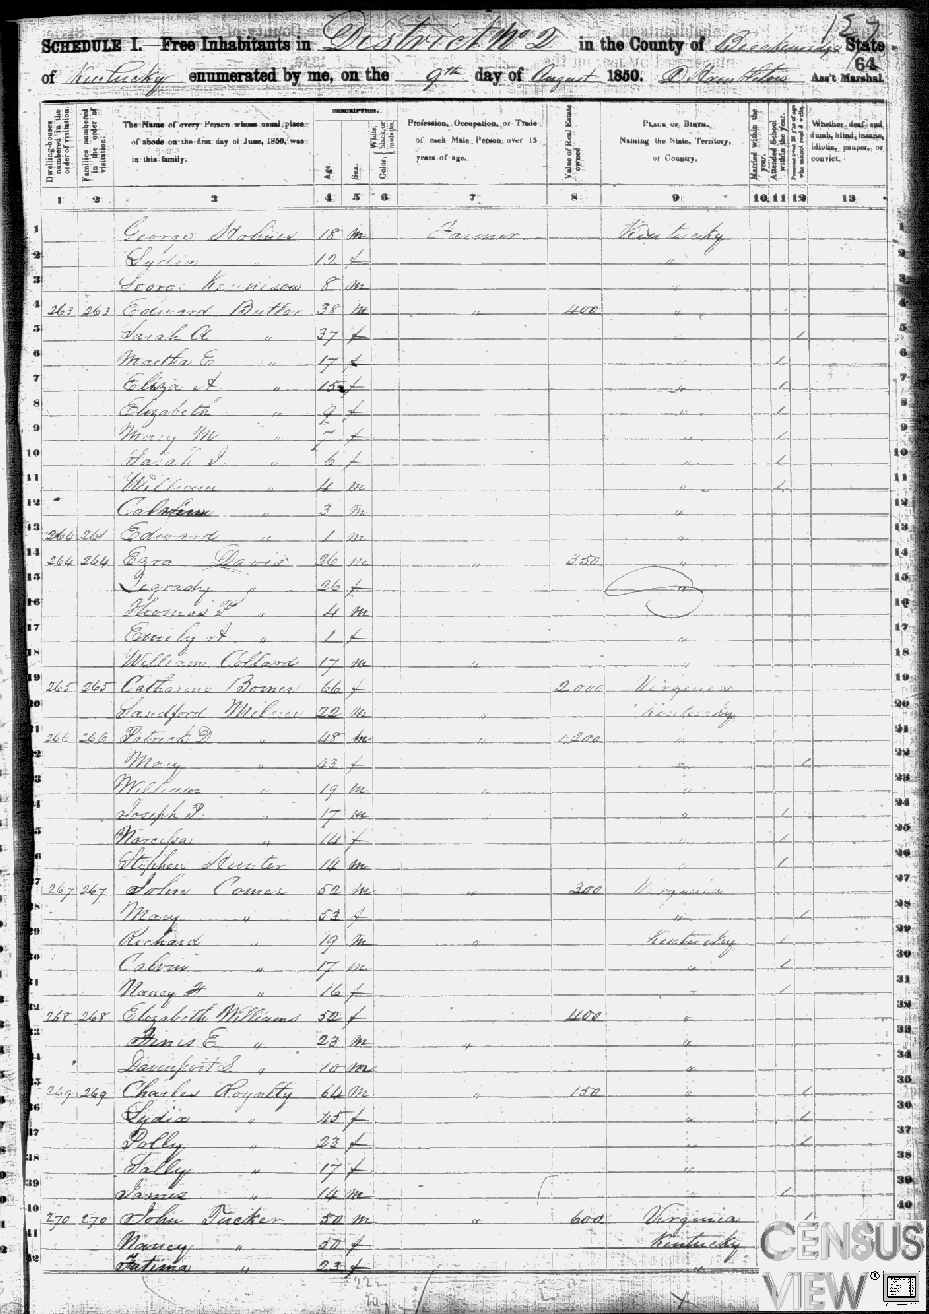 159
SCHEDULE I.—Free Inhabitants in District No 2 in the County of Breckenridge State
64
of Kentucky enumerated by me, on the 9th day of August 1850. Ass't Marshal.
DESCRIPTION.
Dwelling-houses numbered in the order of visitation.
Families numbered in the order of visitation.
The Name of every Person whose usual place of abode on the first day of June, 1850, was in this family.
Age.
Sex.
White, black, or mulatto.
Color,
Profession, Occupation, or Trade of each Male Person over 15 years of age.
Value of Real Estate owned
PLACE OF BIRTH. Naming the State, Territory, or Country.
Married within the year.
Attended School within the year.
Whether deaf and dumb, blind, insane, idiotic, pauper, or convict.
1 2 3 4 5 6 7 8 9 10 11 12 13
1 George 18 m Farmer Kentucky 1
2 Lydia 12 f " 2
3 George 8 m " 3
4 263 263 Edward Butler 38 m " 400 " 4
5 Sarah A " 37 f " 1 5
6 Martha E " 17 f " 1 6
7 Eliza A " 15 f " 1 7
8 Elizabeth " 9 f " 1 8
9 Mary M " 7 f " 1 9
10 Sarah J " 6 f " 1 10
11 William " 4 m " 1 11
12 " 3 m " 12
13 264 264 Edward " 1 m " 13
14 264 264 Ezra David 26 m " 350 " 14
15 " 26 f " 15
16 Thomas F " 4 m 16
17 Emily A " 1 f " 17
18 William Collard 17 m " " 18
19 265 265 Catharine 66 f 2000 Virginia 19
20 Sandford Milner 22 m " Kentucky 20
21 266 266 Patrick D " 48 m " 1200 " 21
22 Mary " 43 f " 1 22
23 William " 19 m " " 23
24 Joseph P. " 17 m " 1 24
25 Narcissa " 14 f " 1 25
26 Stephen Hunter 14 m " 1 26
27 267 267 John Comer 52 m " 300 Virginia 27
28 Mary " 53 f " 1 28
29 Richard " 19 m " Kentucky 1 29
30 Calvin " 17 m " 1 30
31 Nancy " 16 f " 1 31
32 268 268 Elizabeth Williams 52 f 400 " 32
33 Finis E " 23 m " " 33
34 Davenport S " 10 m " 34
35 269 269 Charles Royalty 64 m " 150 " 1 35
36 Lydia " 45 f " 1 36
37 Polly " 23 f " 1 37
38 Sally " 17 f " 38
39 James " 14 m 1 39
40 270 270 John Tucker 50 m " 600 Virginia 1 40
41 Nancy " 50 f Kentucky
42 Fatima " 23 f "
CENSUS
VIEW®